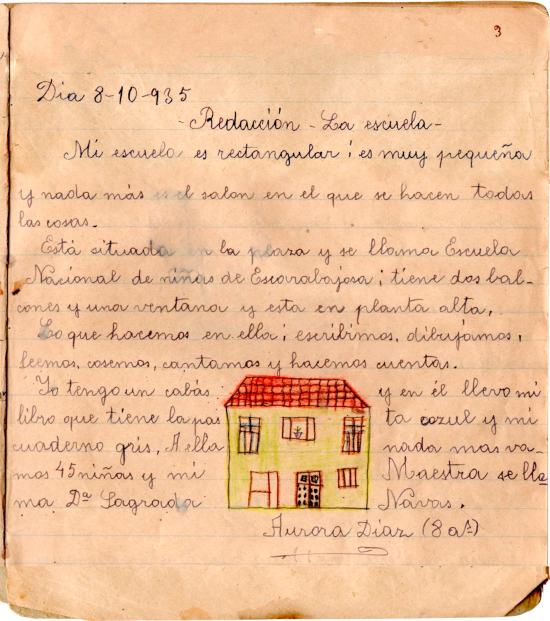 3
Dia 8-10-935
- Redacción - La escuela -
Mi escuela es rectangular; es muy pequeña
y nada más es el salon en el que se hacen todas
las cosas.
Está situada en la plaza y se llama Escuela
Nacional de niñas de Escarabajosa; tiene dos bal-
cones y una ventana y esta en planta alta.
Lo que hacemos en ella; escribimos, dibujamos,
leemos, cosemos, cantamos y hacemos cuentas.
Yo tengo un cabás y en él llevo mi
libro que tiene la pas ta azul y mi
cuaderno gris. A ella nada mas va-
mos 45 niñas y mi Maestra se lla
ma Dª Sagrada Navas.
Aurora Díaz (8 aˢ)